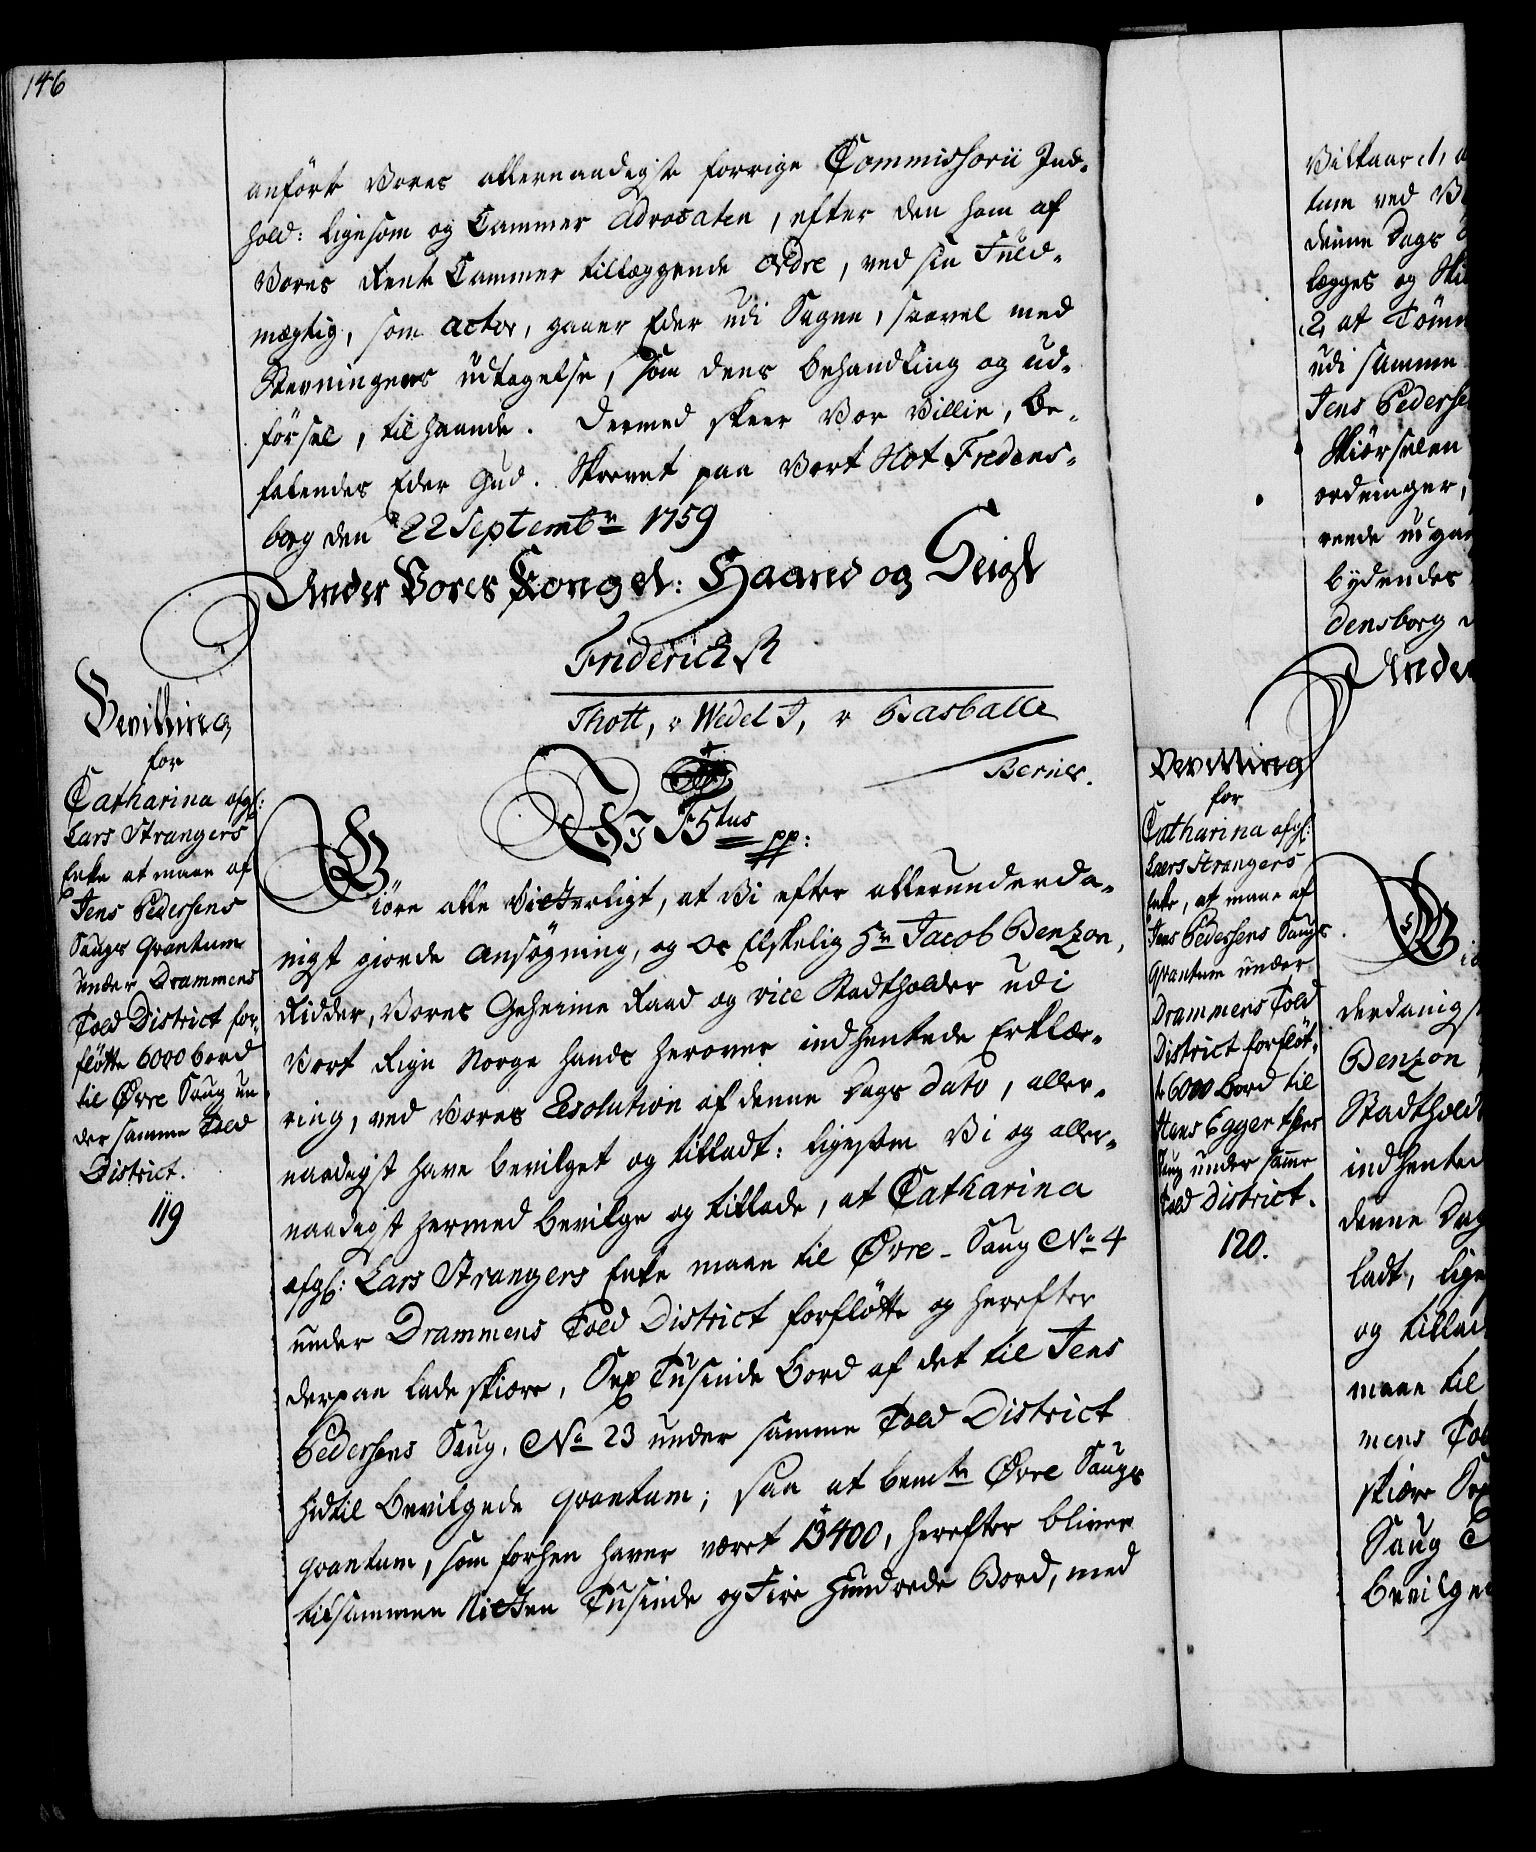 146
anført Vores allernaadigste forrige Commissorii Ind-
hold: ligesom og Cammer Advocaten, efter den ham af
Vores Rente Cammer tillæggende Ordre, ved sin Fuld-
mægtig, som Actor, gaaer Eder udi Sagen, saavel med
Stevningens udtagelse, som dens behandling og ud-
førsel, til haande. Dermed skeer Vor Villie, Be-
falendes Eder Gud. Skrevet paa Vort Slot Fredens-
borg den 22 Septembr 1759
Under Vores Kongel: Haand og Seigl
Friderich R
Thott, v Wedel J, v Basballe
Berner.
Bevilling
for
Catharina afgl:
Lars Strangers
Enke at maae af
Jens Pedersens
Saugs Qvantum
under Drammens
Told District for-
fløtte 6000 bord
til Øvre Saug un
der samme Told
District.
119
Wii F 5tus pp:
Giøre alle Vitterligt, at Vi efter allerunderda-
nigst giorde Ansøgning, og Os Elskelig Hr Jacob Benzon,
Ridder, Vores Geheime Raad og Vice Stadtholder udi
Vort Rige Norge hands herover indhentede Erklæ-
ring, ved Vores Resolution af denne Dags Dato, aller-
naadigst have bevilget og tilladt: ligesom Vi og aller-
naadigst hermed bevilge og tillade, at Catharina
afgl: Lars Strangers Enke maae til Øvre-Saug No 4
under Drammens Told District forfløtte og herefter
derpaa lade skiære, Sex Tusinde Bord af det til Jens
Pedersens Saug, No 23 under samme Told District
hidtil bevilgede Qvantum; saa at bemte Øvre Saugs
Qvantum, som forhen haver været 13400, herefter bliver
tilsammen Nitten Tusinde og Fire Hundrede Bord, med
Bevilling
for
Catharina afgl:
Laers Strangers
Enke, at maae af
Jens Pedersens Saugs
Qvantum under
Drammens Told
District forfløt-
te 6000 Bord til
Hans Eggerthes
Saug under samme
Told District.
120.
Vilkaar
tum ved
denne Dags
lægges og
2, at Tøm
udi samme
Jens Pederse
Skiørselen
ordninger,
bydendes
densborg
Under
derdanigs
Benzon
Stadthold
indhente
denne Dag
ladt, lige
og tillad
maae til
mens Tol
skiære Sex
Saug
bevilge